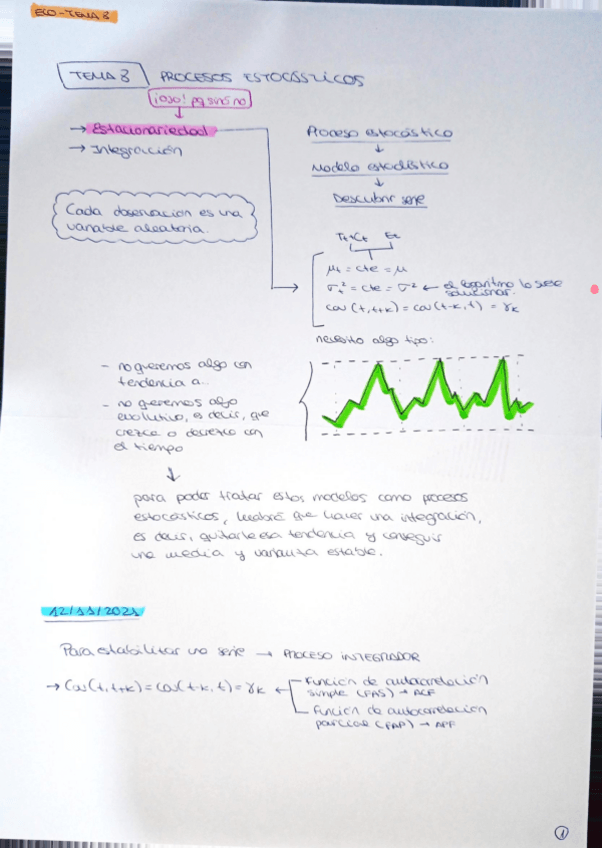 ECO-TEMA 3
TEMA 3 PROCESOS ESTOCÁSTICOS
¡OJO!
→ Estacionariedad
→ Integración
Cada observación es una
variable aleatoria.
Proceso estocástico
↓
Modelo estadístico
↓
Descubrir serie
Tt+Ct Et
μt = cte = μ
σt² = cte = σ² ← el logaritmo lo suele
solucionar.
cov (t, t+k) = cov (t-k, t) = γk
necesito algo tipo:
- no queremos algo con
tendencia a...
- no queremos algo
evolutivo, es decir, que
crezca o decrezca con
el tiempo
↓
para poder tratar estos modelos como procesos
estocásticos, habrá que hacer una integración,
es decir, quitarle esa tendencia y conseguir
una media y varianza estable.
12/11/2021
Para estabilizar una serie → PROCESO INTEGRADOR
→ Cov(t, t+k) = cov(t-k, t) = γk ←
Función de autocorrelación
simple (FAS) → ACF
Función de autocorrelación
parcial (FAP) → APF
1